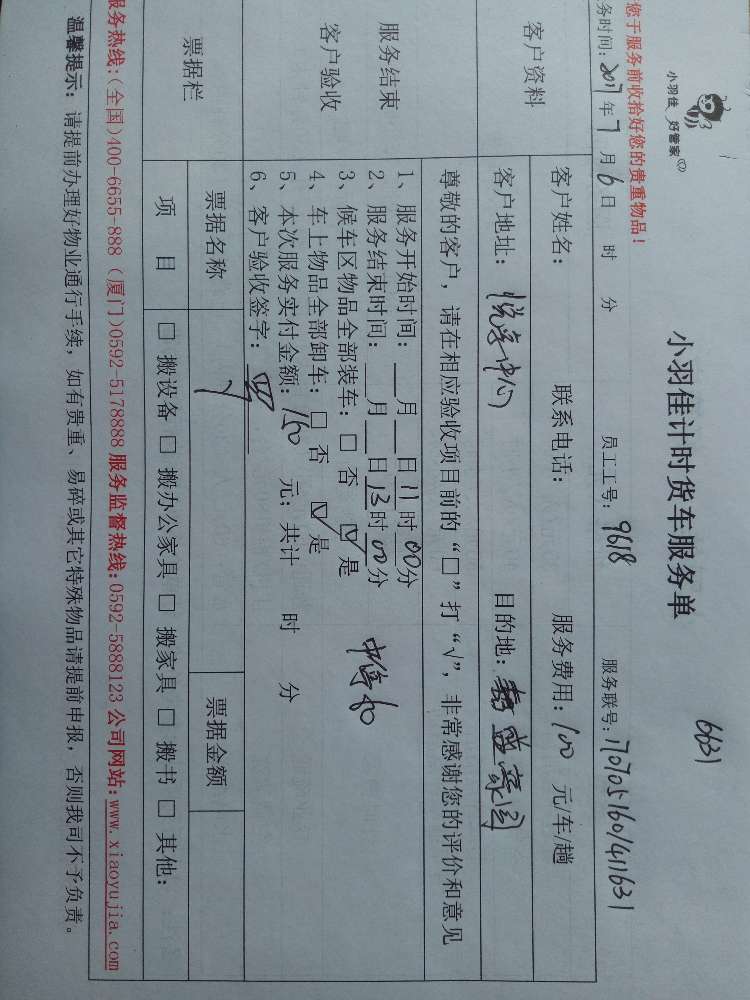 6631
小羽佳 好管家
小羽佳计时货车服务单
您于服务前收拾好您的贵重物品!
务时间: 2017年7月6日 时 分 员工工号: 9618 服务联号: 170705160411631
客户资料
客户姓名: 联系电话: 服务费用: 100 元/车/趟
客户地址: 悦享中心 目的地: 嘉盛豪园
服务结束
客户验收
尊敬的客户, 请在相应验收项目前的“□”打“√”, 非常感谢您的评价和意见
1、服务开始时间: __月__日11时00分
2、服务结束时间: __月__日13时00分
3、候车区物品全部装车: □ 否 ☑ 是
4、车上物品全部卸车: □ 否 ☑ 是
5、本次服务实付金额: 160 元; 共计 时 分
6、客户验收签字:
票据栏
票据名称 票据金额
项 目 □ 搬设备 □ 搬办公家具 □ 搬家具 □ 搬书 □ 其他:
服务热线:(全国)400-6655-888 (厦门)0592-5178888 服务监督热线:0592-5888123 公司网站:www.xiaoyujia.com
温馨提示: 请提前办理好物业通行手续, 如有贵重、易碎或其它特殊物品请提前申报, 否则我司不予负责。